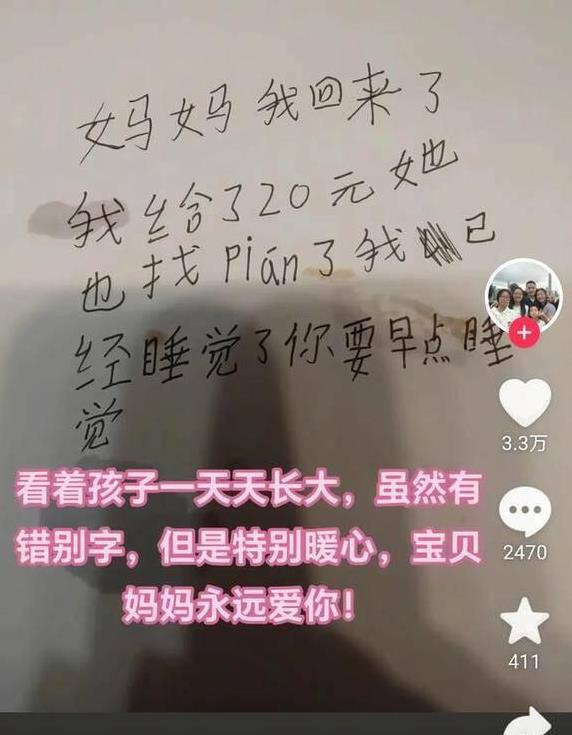 妈妈我回来了
我给了20元她
也找pián了我已
经睡觉了你要早点睡
觉
看着孩子一天天长大，虽然有
错别字，但是特别暖心，宝贝
妈妈永远爱你！
3.3万
2470
411